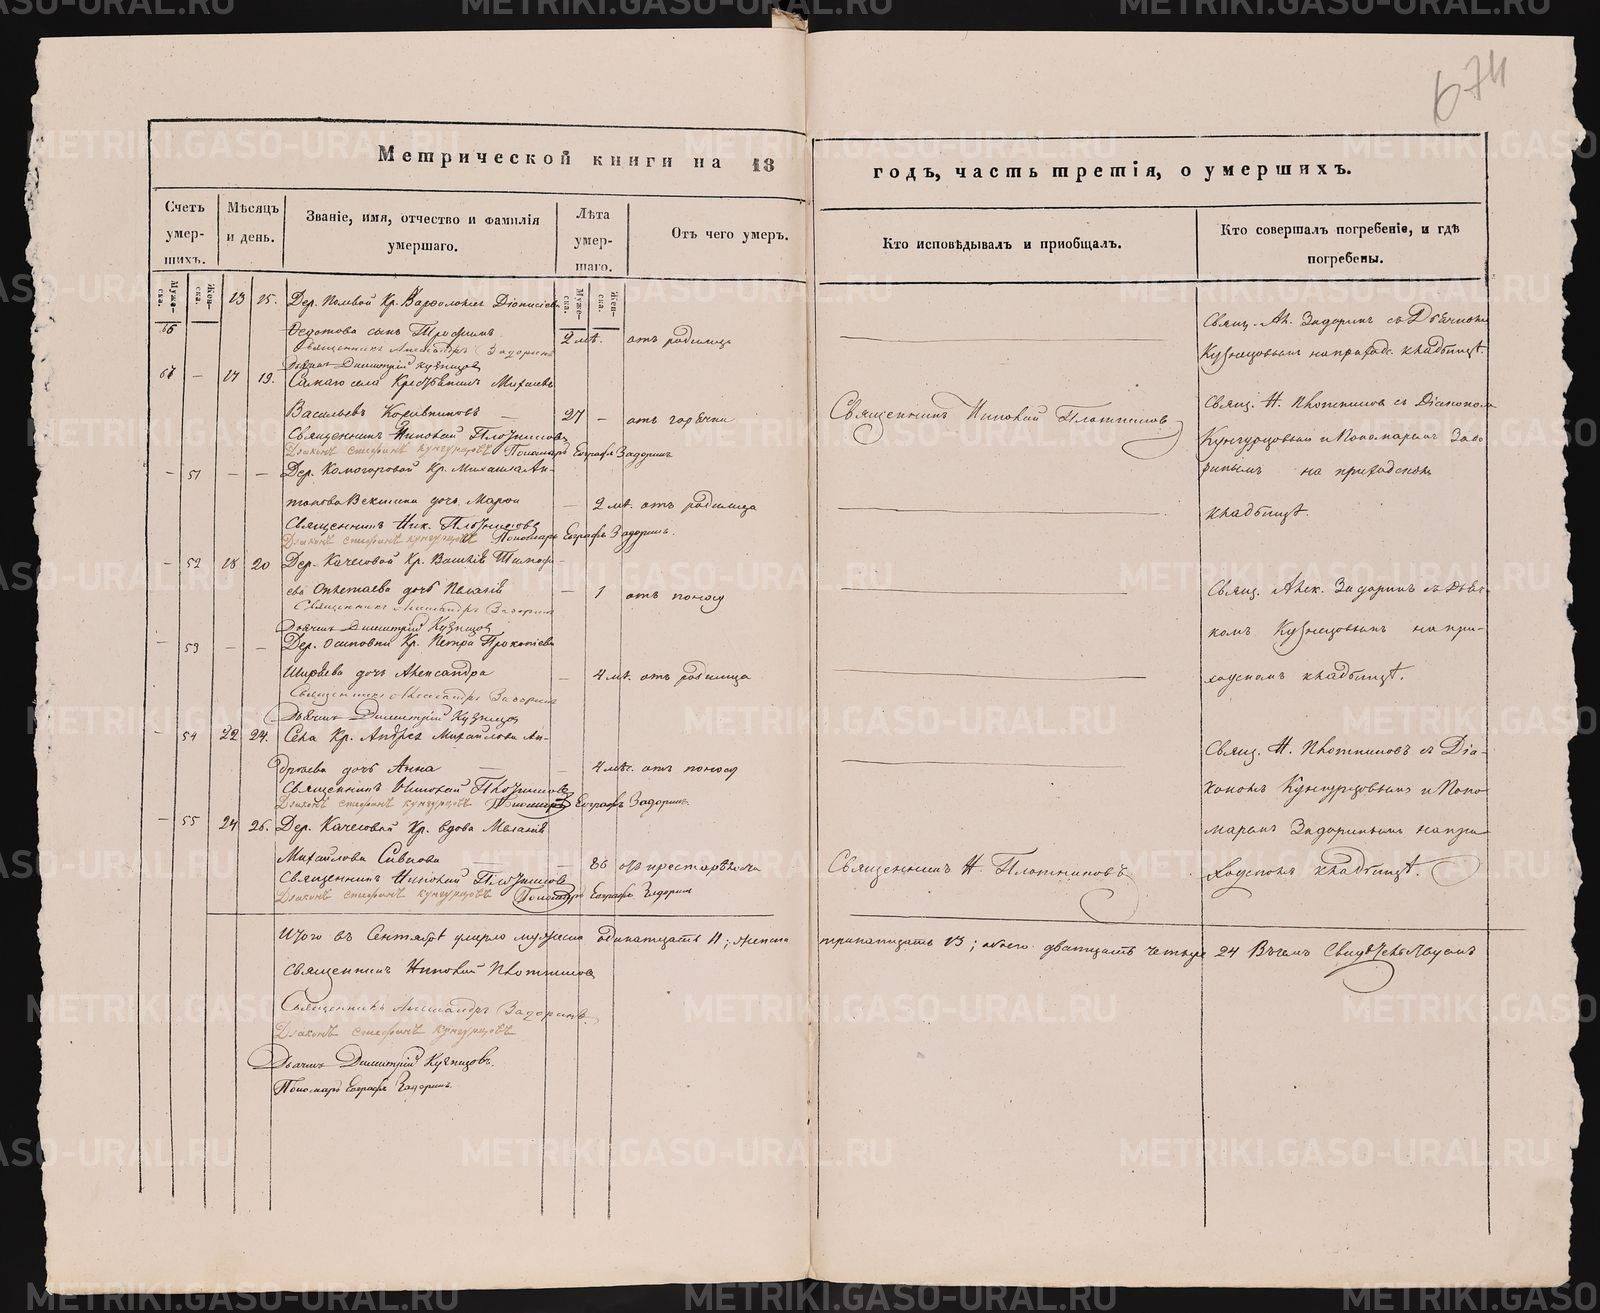 674
Метрической книги на 18
годъ, часть третія, о умершихъ.
Счетъ умер-шихъ.
Мѣсяцъ и день.
Званіе, имя, отчество и фамилія умершаго.
Лѣта умер-шаго.
Отъ чего умеръ.
Кто исповѣдывалъ и пріобщалъ.
Кто совершалъ погребеніе, и гдѣ погребены.
Муже-ска.
Жен-ска.
Муже-ска.
Жен-ска.
13 15. Дер. Крᲂ. Діонисіевъ
66 Ѳедотова сынъ Трофимъ 2 мѣ. отъ родимца
Свящ. Ал. Задоринъ съ Дьячкомъ
Священникъ Александръ Задоринъ
Кузнецовымъ на приход. кладбищѣ.
Дьячекъ Димитрій Кузнецовъ
67 — 17 19. села Михаилъ
Васильевъ — 27 — отъ горячки
Священникъ Николай Плотниковъ
Свящ. Н. Плотниковъ съ Діакономъ
Священникъ Николай Плотниковъ
Кунгурцовымъ и Пономаремъ Задо-
Діаконъ Стефанъ Кунгурцовъ Пономарь Евграфъ Задоринъ
ринымъ на приходскомъ
— 51 — — Дер. Комогоровой Кр. Михаила Ан-
дочь Марѳа — 2 мѣ. отъ родимца
кладбищѣ.
Священникъ Ник. Плотниковъ
Діаконъ Стефанъ Кунгурцовъ Пономарь Евграфъ Задоринъ.
— 52 18 20 Дер. Качесовой Кр. Тимоѳе-
ева дочь Пелагія — 1 отъ поносу
Свящ. Алек. Задоринъ съ Дьяч-
Священникъ Александръ Задоринъ
комъ Кузнецовымъ на при-
Дьячекъ Димитрій Кузнецовъ
— 53 — — Дер. Осиповки Кр. Петра Прокопіева
Ширяева дочь Александра — 4 мѣ. отъ родимца
ходскомъ кладбищѣ.
Священникъ Александръ Задоринъ
Дьячекъ Димитрій Кузнецовъ
— 54 22 24. Села Кр. Андрея Михайлова Ан-
Свящ. Н. Плотниковъ съ Діа-
дреева дочь Анна — 4 мѣс. отъ поносу
Священникъ Николай Плотниковъ
кономъ Кунгурцовымъ и Поно-
Діаконъ Стефанъ Кунгурцовъ Пономарь Евграфъ Задоринъ.
— 55 24 26. Дер. Качесовой Кр. вдова Меланія
маремъ Задоринымъ на при-
Михайлова — 86 отъ престарѣлости
Священникъ Н. Плотниковъ
ходскомъ кладбищѣ.
Священникъ Николай Плотниковъ
Діаконъ Стефанъ Кунгурцовъ Пономарь Евграфъ Задоринъ
Итого въ Сентябрѣ умерло мужеска одинатцать 11; женска тринатцать 13; обоего дватцать четыре 24 Въ чемъ Свидѣтельствуемъ
Священникъ Николай Плотниковъ
Священникъ Александръ Задоринъ.
Діаконъ Стефанъ Кунгурцовъ
Дьячекъ Димитрій Кузнецовъ.
Пономарь Евграфъ Задоринъ.
METRIKI.GASO-URAL.RU